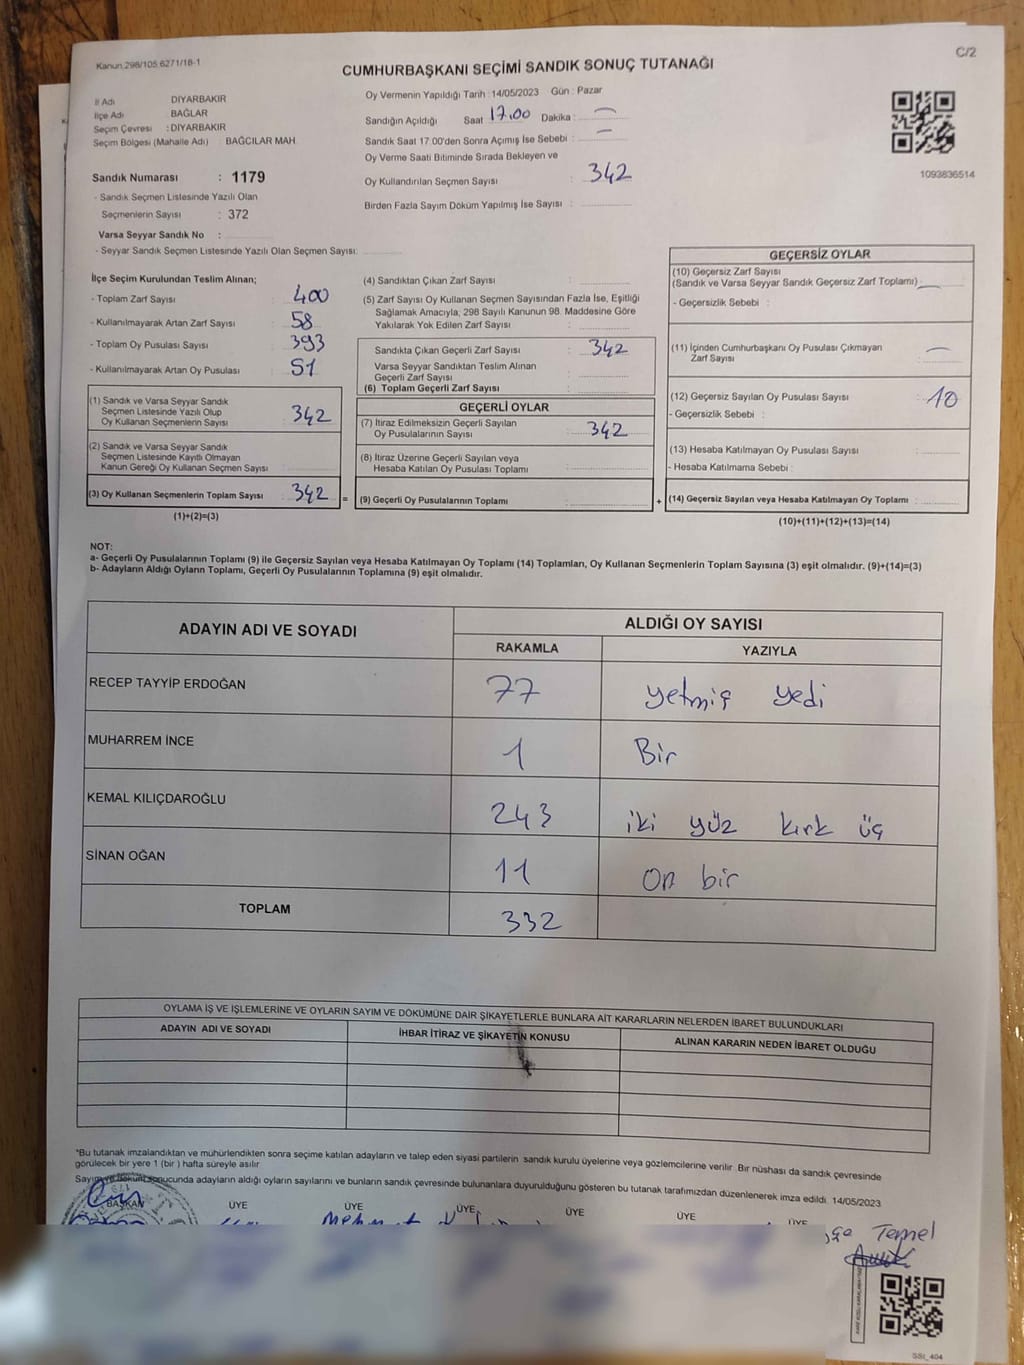 Kanun.298/105.6271/18-1
C/2
CUMHURBAŞKANI SEÇİMİ SANDIK SONUÇ TUTANAĞI
İl Adı DİYARBAKIR
İlçe Adı BAĞLAR
Seçim Çevresi : DİYARBAKIR
Seçim Bölgesi (Mahalle Adı) BAĞCILAR MAH.
Sandık Numarası : 1179
- Sandık Seçmen Listesinde Yazılı Olan
Seçmenlerin Sayısı : 372
Varsa Seyyar Sandık No :
- Seyyar Sandık Seçmen Listesinde Yazılı Olan Seçmen Sayısı:
Oy Vermenin Yapıldığı Tarih : 14/05/2023 Gün : Pazar
Sandığın Açıldığı Saat 17.00 Dakika : —
Sandık Saat 17.00'den Sonra Açımış İse Sebebi : —
Oy Verme Saati Bitiminde Sırada Bekleyen ve
Oy Kullandırılan Seçmen Sayısı : 342
Birden Fazla Sayım Döküm Yapılmış İse Sayısı :
1093836514
İlçe Seçim Kurulundan Teslim Alınan;
- Toplam Zarf Sayısı : 400
- Kullanılmayarak Artan Zarf Sayısı : 58
- Toplam Oy Pusulası Sayısı : 393
- Kullanılmayarak Artan Oy Pusulası : 51
(1) Sandık ve Varsa Seyyar Sandık
Seçmen Listesinde Yazılı Olup
Oy Kullanan Seçmenlerin Sayısı : 342
(2) Sandık ve Varsa Seyyar Sandık
Seçmen Listesinde Kayıtlı Olmayan
Kanun Gereği Oy Kullanan Seçmen Sayısı :
(3) Oy Kullanan Seçmenlerin Toplam Sayısı : 342 =
(1)+(2)=(3)
(4) Sandıktan Çıkan Zarf Sayısı :
(5) Zarf Sayısı Oy Kullanan Seçmen Sayısından Fazla İse, Eşitliği
Sağlamak Amacıyla, 298 Sayılı Kanunun 98. Maddesine Göre
Yakılarak Yok Edilen Zarf Sayısı :
Sandıkta Çıkan Geçerli Zarf Sayısı : 342
Varsa Seyyar Sandıktan Teslim Alınan
Geçerli Zarf Sayısı :
(6) Toplam Geçerli Zarf Sayısı :
GEÇERLİ OYLAR
(7) İtiraz Edilmeksizin Geçerli Sayılan
Oy Pusulalarının Sayısı : 342
(8) İtiraz Üzerine Geçerli Sayılan veya
Hesaba Katılan Oy Pusulası Toplamı :
(9) Geçerli Oy Pusulalarının Toplamı : +
GEÇERSİZ OYLAR
(10) Geçersiz Zarf Sayısı
(Sandık ve Varsa Seyyar Sandık Geçersiz Zarf Toplamı) —
- Geçersizlik Sebebi :
(11) İçinden Cumhurbaşkanı Oy Pusulası Çıkmayan
Zarf Sayısı : —
(12) Geçersiz Sayılan Oy Pusulası Sayısı : 10
- Geçersizlik Sebebi :
(13) Hesaba Katılmayan Oy Pusulası Sayısı :
- Hesaba Katılmama Sebebi :
(14) Geçersiz Sayılan veya Hesaba Katılmayan Oy Toplamı :
(10)+(11)+(12)+(13)=(14)
NOT:
a- Geçerli Oy Pusulalarının Toplamı (9) ile Geçersiz Sayılan veya Hesaba Katılmayan Oy Toplamı (14) Toplamları, Oy Kullanan Seçmenlerin Toplam Sayısına (3) eşit olmalıdır. (9)+(14)=(3)
b- Adayların Aldığı Oyların Toplamı, Geçerli Oy Pusulalarının Toplamına (9) eşit olmalıdır.
ADAYIN ADI VE SOYADI ALDIĞI OY SAYISI
RAKAMLA YAZIYLA
RECEP TAYYİP ERDOĞAN 77 yetmiş yedi
MUHARREM İNCE 1 Bir
KEMAL KILIÇDAROĞLU 243 iki yüz kırk üç
SİNAN OĞAN 11 on bir
TOPLAM 332
OYLAMA İŞ VE İŞLEMLERİNE VE OYLARIN SAYIM VE DÖKÜMÜNE DAİR ŞİKAYETLERLE BUNLARA AİT KARARLARIN NELERDEN İBARET BULUNDUKLARI
ADAYIN ADI VE SOYADI İHBAR İTİRAZ VE ŞİKAYETİN KONUSU ALINAN KARARIN NEDEN İBARET OLDUĞU
*Bu tutanak imzalandıktan ve mühürlendikten sonra seçime katılan adayların ve talep eden siyasi partilerin sandık kurulu üyelerine veya gözlemcilerine verilir. Bir nüshası da sandık çevresinde
görülecek bir yere 1 (bir) hafta süreyle asılır.
Sayım ve döküm sonucunda adayların aldığı oyların sayılarını ve bunların sandık çevresinde bulunanlara duyurulduğunu gösteren bu tutanak tarafımızdan düzenlenerek imza edildi. 14/05/2023
BAŞKAN ÜYE ÜYE ÜYE ÜYE ÜYE
Mehmet
Temel
SSI_404